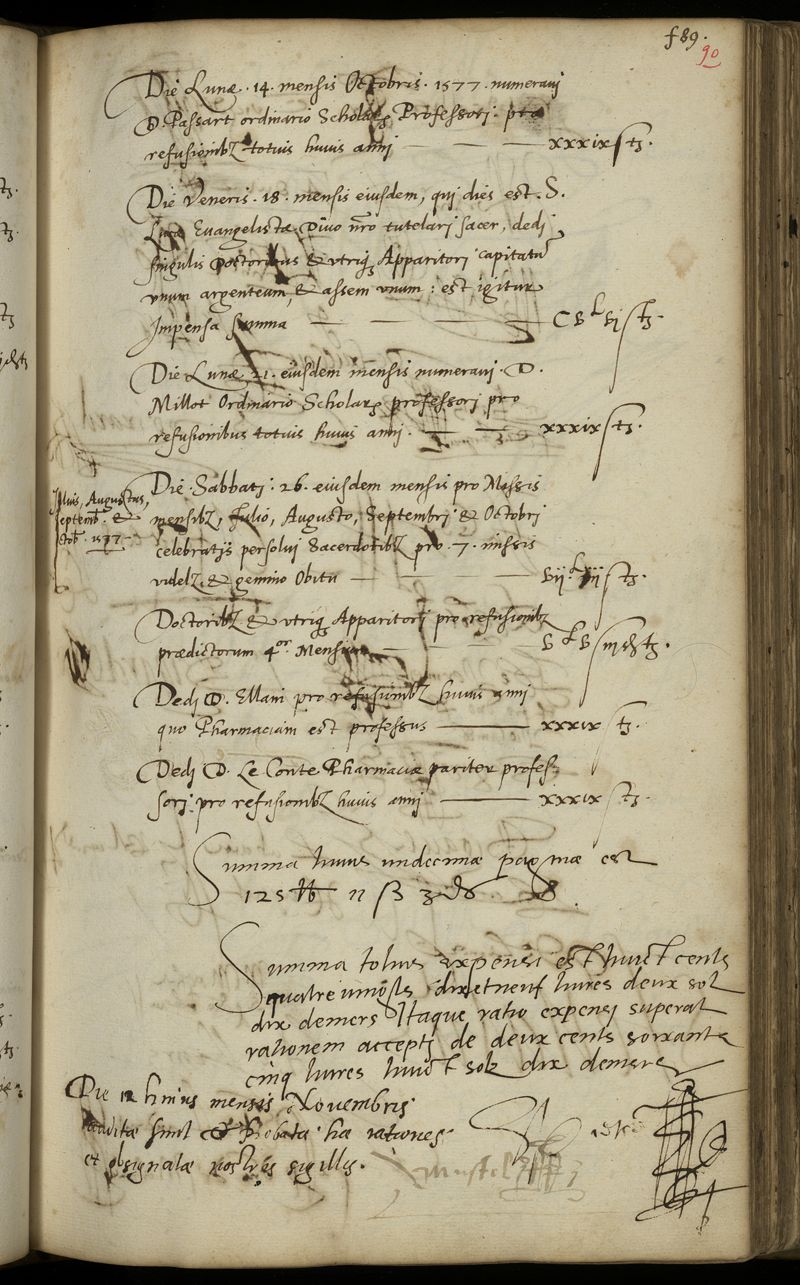 f 89.
90
Die Lunæ . 14 . mensis Octobris . 1577 . numeravj
D. Passart ordinario Scholaꝝ Professorj . pro
refusionibꝫ totius huius annj — xxxix s tz.
Die Veneris . 18 . mensis eiusdem, quj dies est . S.
Lucæ Evangelistæ Divo nr̃o tutelarj sacer, dedj
singulis Doctoribus & utriqꝫ Apparitorj capitatũ
vnum argenteum, & assem vnum : est igitur
Impensa summa — C v l vj s tz.
Die Lunæ 21 . eiusdem mensis numeravj . D.
Millot Ordinario Scholaꝝ professorj pro
refusionibus totius huius annj . — xxxix s tz.
Iulius, Augustus,
Septemb. &
Octob. 1577
Die Sabbatj . 26 . eiusdem mensis pro Missis
mensibꝫ, Julio, Augusto, Septembrj & Octobrj
celebratis persoluj Sacerdotibꝫ pro . 7 . missis
videlꝫ. & gemino Obitu — vij l ij s tz.
Doctoribꝫ & utriqꝫ Apparitorj pro refusionibꝫ
prædictorum 4or Mensium — v l v s iij d tz.
Dedj D. Ellain pro refusionibꝫ huius annj
quo Pharmaciam est professus — xxxix s tz.
Dedj D. Le Conte Pharmaciæ pariter profes-
sorj pro refusionibꝫ huius annj — xxxix s tz.
Summa huius undecimæ paginæ est
125 lb 11 ß 3 d
Summa totius expensi est huict cents
quatre vingts dix et neuf livres deux solz
dix deniers Itaque ratio expensj superat
rationem acceptj de deux cents soixante
cinq livres huict solz dix deniers
Die 12 huius mensis Novembris
auditæ sunt & probatæ hæ rationes
et obsignatæ nostris sigillis.